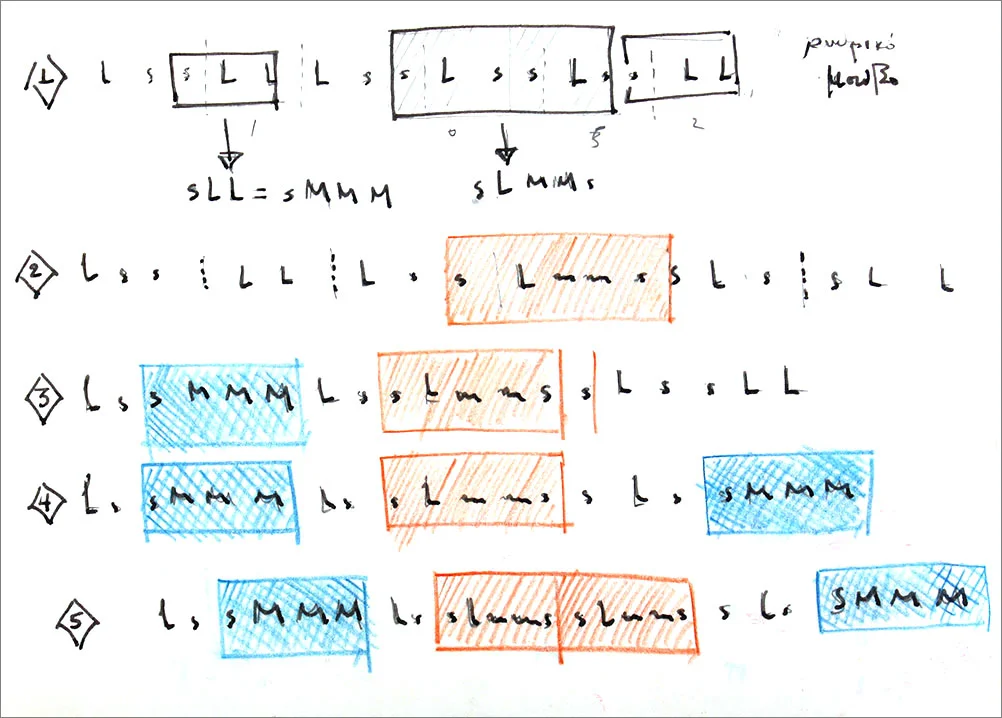 1 L s s L L L s s L s s L s s L L
ρυθμικό
μοτίβο
1 0 2
s L L = s M M M s L M M s
2 L s s L L L s s L m m s s L s s L L
3 L s s M M M L s s L m m s s L s s L L
4 L s s M M M L s s L m m s s L s s M M M
5 L s s M M M L s s L m m s s L m m s s L s s M M M